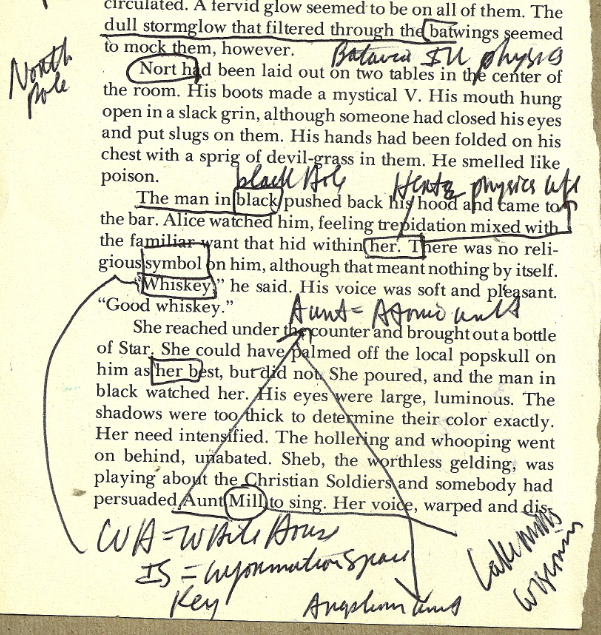 circulated. A fervid glow seemed to be on all of them. The
dull stormglow that filtered through the batwings seemed
to mock them, however.
Batavia Ill physics
North
Pole
Nort had been laid out on two tables in the center of
the room. His boots made a mystical V. His mouth hung
open in a slack grin, although someone had closed his eyes
and put slugs on them. His hands had been folded on his
chest with a sprig of devil-grass in them. He smelled like
poison.
black Hole
Hertz physics
The man in black pushed back his hood and came to
the bar. Alice watched him, feeling trepidation mixed with
the familiar want that hid within her. There was no reli-
gious symbol on him, although that meant nothing by itself.
"Whiskey," he said. His voice was soft and pleasant.
"Good whiskey."
Aunt = Atomic units
She reached under the counter and brought out a bottle
of Star. She could have palmed off the local popskull on
him as her best, but did not. She poured, and the man in
black watched her. His eyes were large, luminous. The
shadows were too thick to determine their color exactly.
Her need intensified. The hollering and whooping went
on behind, unabated. Sheb, the worthless gelding, was
playing about the Christian Soldiers and somebody had
persuaded Aunt Mill to sing. Her voice, warped and dis-
WH = White House
IS = Information Space
Key
Angstrom Unit
Lake Mills
Wisconsin